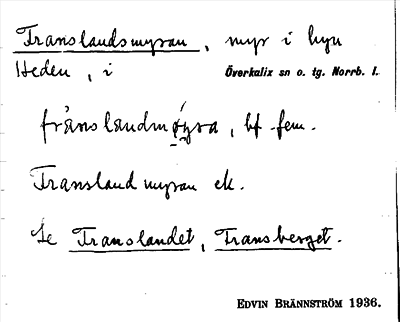 Translandsmyran, myr i byn
Heden, i Överkalix sn o. tg. Norrb. l.
fránslandmøyra, bf. fem.
Transland myran ek.
Se Translandet, Transberget.
EDVIN BRÄNNSTRÖM 1936.